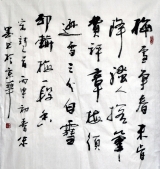 梅雪争春未肯
降骚人搁笔
费评章梅须
逊雪三分白雪
却输梅一段香